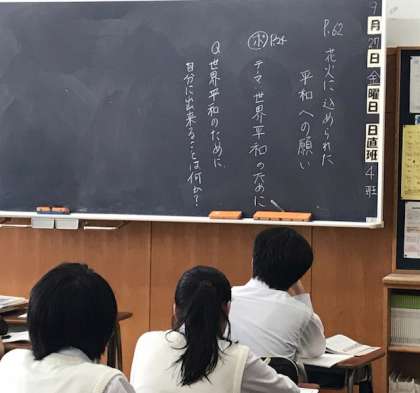 9月27日金曜日 日直班4班
P.62 花火に込められた
平和への願い
ポ P.24
テーマ 世界平和のために
Q 世界平和のために、
自分に出来ることは何か?